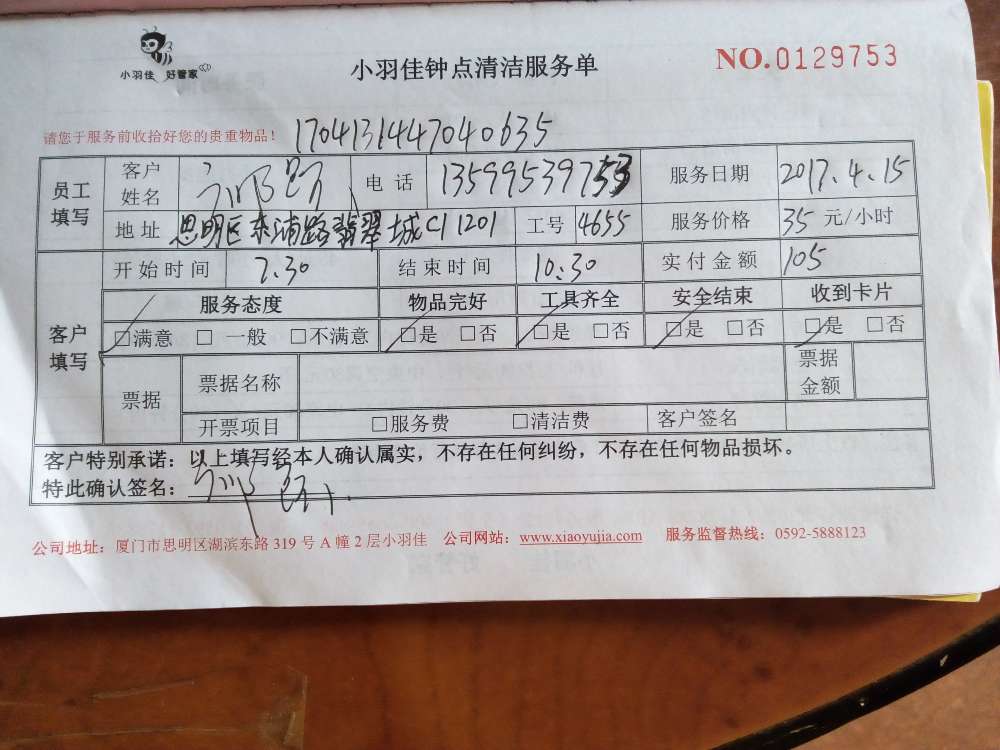 小羽佳 好管家
小羽佳钟点清洁服务单
NO.0129753
请您于服务前收拾好您的贵重物品！ 1704131447040635
员工填写 客户姓名 电话 13599539753 服务日期 2017.4.15
地址 思明区东浦路翡翠城C1 1201 工号 4655 服务价格 35 元/小时
客户填写 开始时间 7.30 结束时间 10:30 实付金额 105
服务态度 物品完好 工具齐全 安全结束 收到卡片
□满意 □一般 □不满意 □是 □否 □是 □否 □是 □否 □是 □否
票据 票据名称 票据金额
开票项目 □服务费 □清洁费 客户签名
客户特别承诺：以上填写经本人确认属实，不存在任何纠纷，不存在任何物品损坏。
特此确认签名：
公司地址：厦门市思明区湖滨东路 319 号 A 幢 2 层小羽佳 公司网站：www.xiaoyujia.com 服务监督热线：0592-5888123